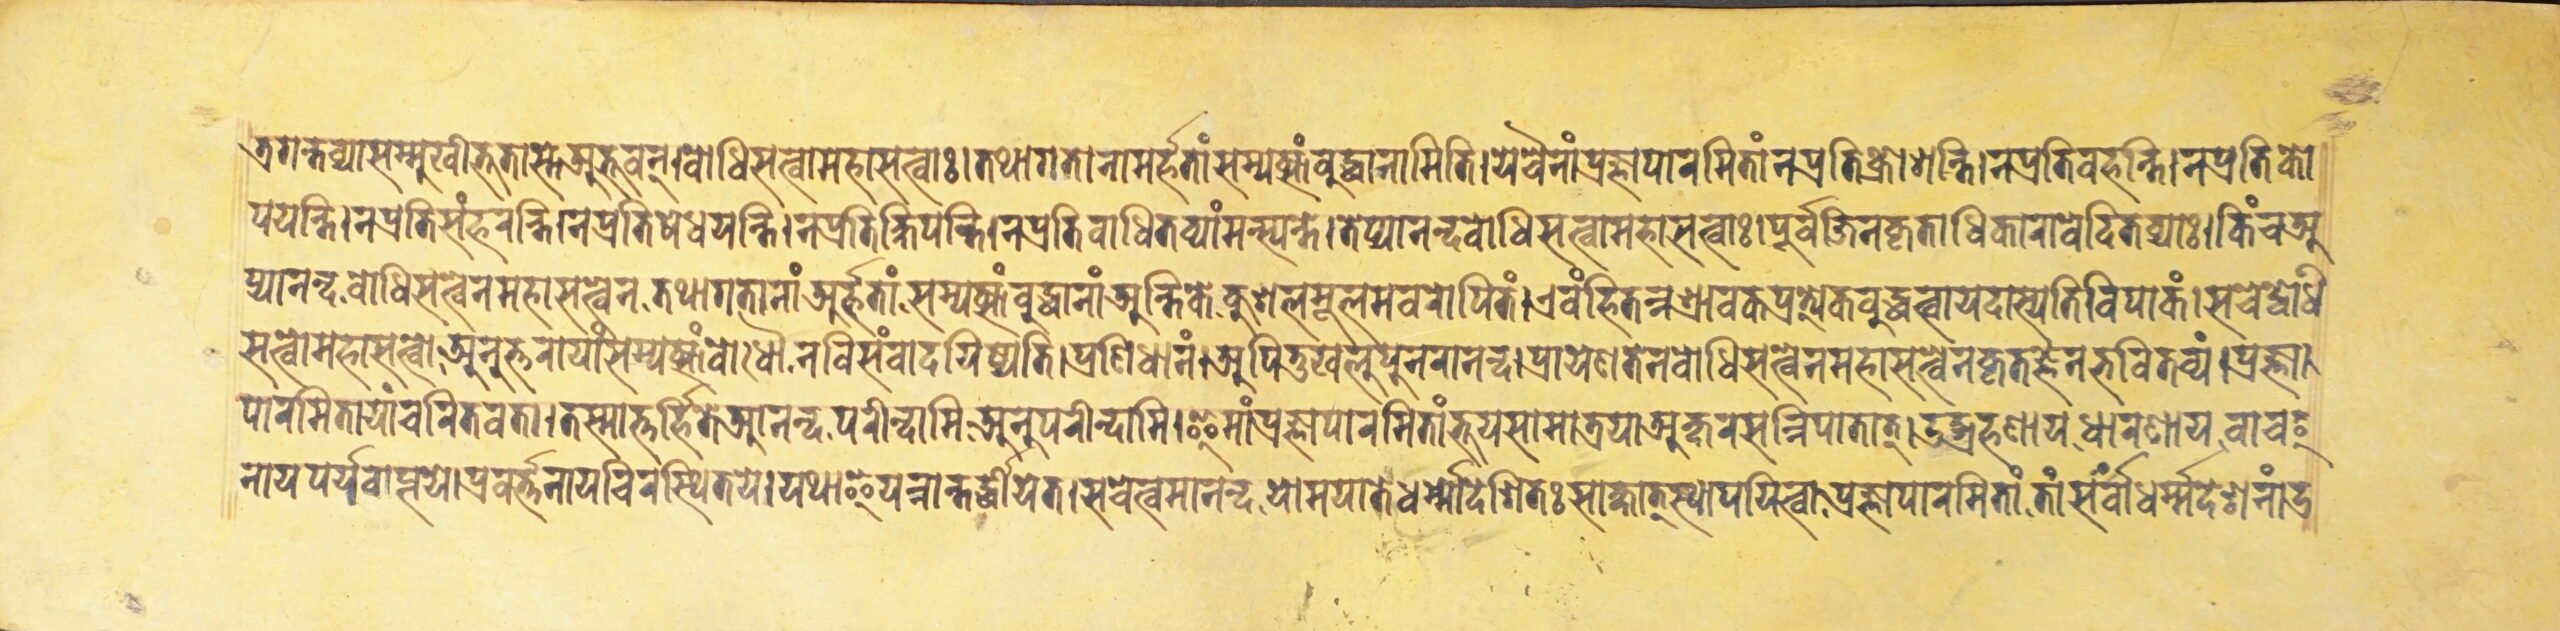 त्रगन्तव्यासम्मुखीभूतास्तेअभूवन्।बोधिसत्वामहासत्वाः।तथागतानामर्हतांसम्यक्संबुद्धानामिति।येचैनांप्रज्ञापारमितांनप्रतिक्रोशन्ति।नप्रतिवहन्ति।नप्रतिको
पयन्ति।नप्रतिसंहरन्ति।नप्रतिषेधयन्ति।नप्रतिक्षिपन्ति।नप्रतिबाधितव्यांमन्स्यन्ते।तेप्यानन्दबोधिसत्वामहासत्वाः।पूर्वजिनकृताधिकारावेदितव्याः।किंचअ
प्यानन्दबोधिसत्वेनमहासत्वेनतथागतानांअर्हतांसम्यक्संबुद्धानांअन्तिकेकुशलमूलमवरोपितं।एवंहितन्नश्रावकप्रत्येकबुद्धत्वायदास्यतिविपाकं।सचेद्बोधि
सत्वोमहासत्वोअनुत्तरायांसम्यक्संबोधौनविसंवादयिष्यति।प्रणिधानं।अपितुखलुपुनरानन्द।प्रायेणतेनबोधिसत्वेनमहासत्वेनकृतज्ञेनभवितव्यं।प्रज्ञा
पारमितायांचरितवता।तस्मात्तर्हितेआनन्दपरीन्दामिअनुपरीन्दामि।इमांप्रज्ञापारमितांभूयसामात्रयाअक्षरसन्निपातात्।उद्ग्रहणायधारणायवाच
नायपर्यवाप्तये।प्रवर्त्तनायचिरस्थितये।यथाइयन्नान्तर्द्धीयेत।सचेत्वमानन्दयोमयातेधर्म्मोदेशितःसाक्षात्स्थापयित्वाप्रज्ञापारमितांतांसर्वांधर्म्मदेशनांउ